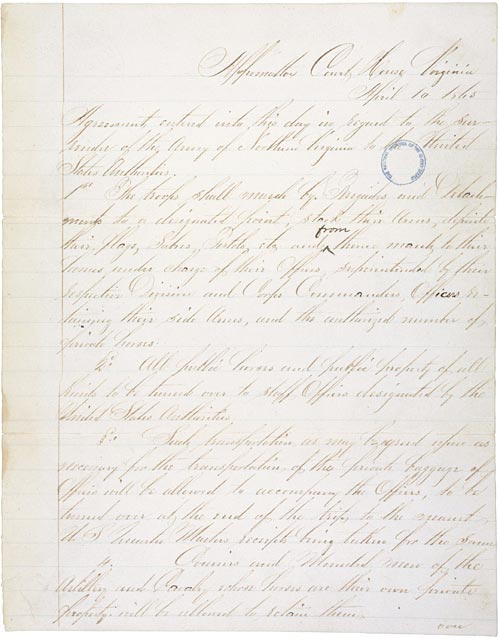 Appomattox Court House Virginia
April 10 1865
Agreement entered into this day in regard to the sur-
render of the Army of Northern Virginia to the United
States Authorities.
1st The troops shall march by Brigades and Detach-
ments to a designated point, stack their Arms, deposit
their flags, Sabres, Pistols, etc. and from thence march to their
homes under charge of their Officers, superintended by their
respective Division and Corps Commanders, Officers re-
taining their side Arms, and the authorized number of
private horses.
2. All public horses and public property of all
kinds to be turned over to staff Officers designated by the
United States Authorities.
3. Such transportation as may be agreed upon as
necessary for the transportation of the private baggage of
Officers will be allowed to accompany the Officers, to be
turned over at the end of the trip to the nearest
U.S. Quarter Masters, receipts being taken for the same.
4. Couriers and Mounted men of the
Artillery and Cavalry whose horses are their own private
property will be allowed to retain them.
over